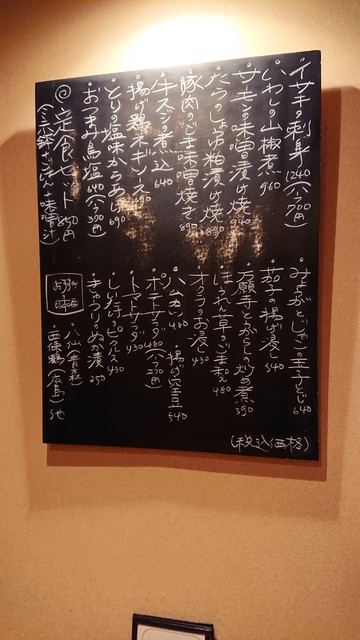 イサキの刺身 1240 (ハーフ700円)
いわしの山椒煮 960
サーモンの味噌漬け焼 940
たらのしょうゆ粕漬け焼 890
豚肉のごま味噌焼き 890
牛スジの煮込 640
揚げ鶏ネギソース 690
とりの塩味からあげ 690
おつまみ鳥塩 640 (ハーフ370円)
定食セット 850円
(小鉢・ごはん・味噌汁)
みょうがとじゃこの玉子とじ 640
茄子の揚げ浸し 540
万願寺とうがらしの炒め煮 590
ほうれん草のごま和え 480
オクラのお浸し 430
八幸古い 480
揚げ空豆 540
ポテトサラダ 480 (ハーフ270円)
トマトサラダ 430
しいたけピクルス 430
きゅうりのぬか漬 250
おすすめ日本酒
八仙 (青森)
西條鶴 (広島) 他
(税込価格)